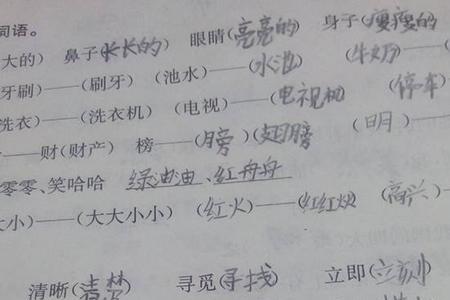 词语。
大的) 鼻子(长长的) 眼睛(亮亮的) 身子(瘦瘦的
牙刷)——(刷牙) (池水)——(水池) (牛奶)——(
洗衣)——(洗衣机) (电视)——(电视机) (停车)
——财(财产) 榜——(膀)(翅膀) (日月)——
零零、笑哈哈 绿油油、红舟舟
大小)——(大大小小) (红火)——(红红火火) (高兴)—(
清晰(清楚) 寻觅(寻找) 立即(立刻)